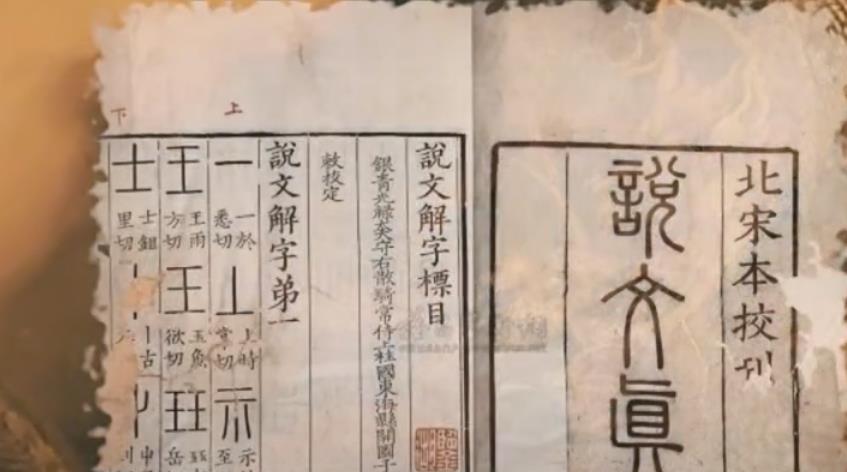 北宋本挍刊
說文眞
說文解字標目
銀青光祿大夫守右散騎常侍上柱國東海縣開國子
敕挍定
說文解字弟一
上
一 一於悉切
丄 上時掌切
示 示至
下
王 王雨方切
玉 玉魚欲切
玨 岳
士 士鉏里切
丨 丨古
屮